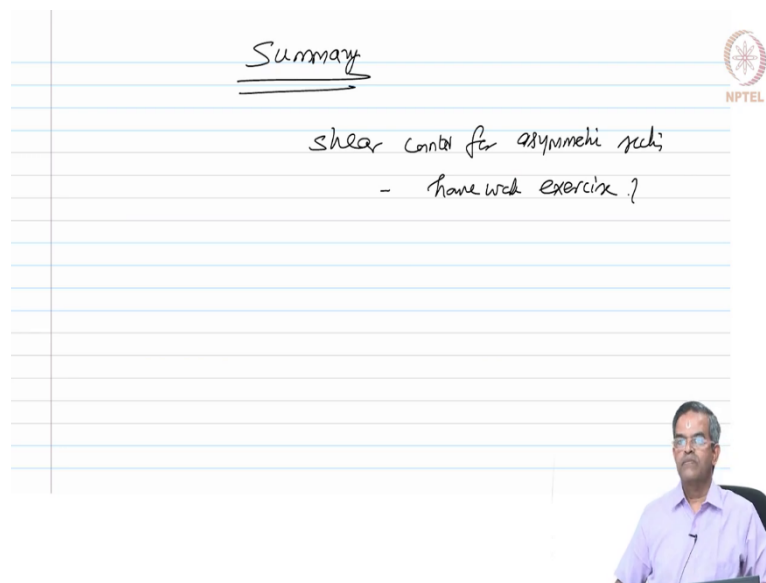 Summary
NPTEL
shear center for asymmetric section
- home work exercise ?